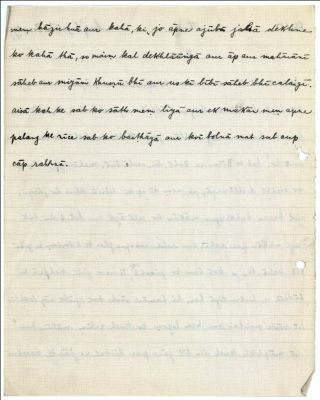 mem hāzir huā aur kahā, ki, jo āpne ajūbā jalsā dekhne
ko kahā thā, so maim kal dekhlāūṅgā aur āp aur
sāheb aur mizān bhī aur us kī bībī sāheb bhī calaiga.
aisā kah ke sab ko sāth mem liyā aur ek makān mem apne
palaṅg ke nīce sab ko baithāyā aur koī bolnā mat sab cup
cāp rahnā.